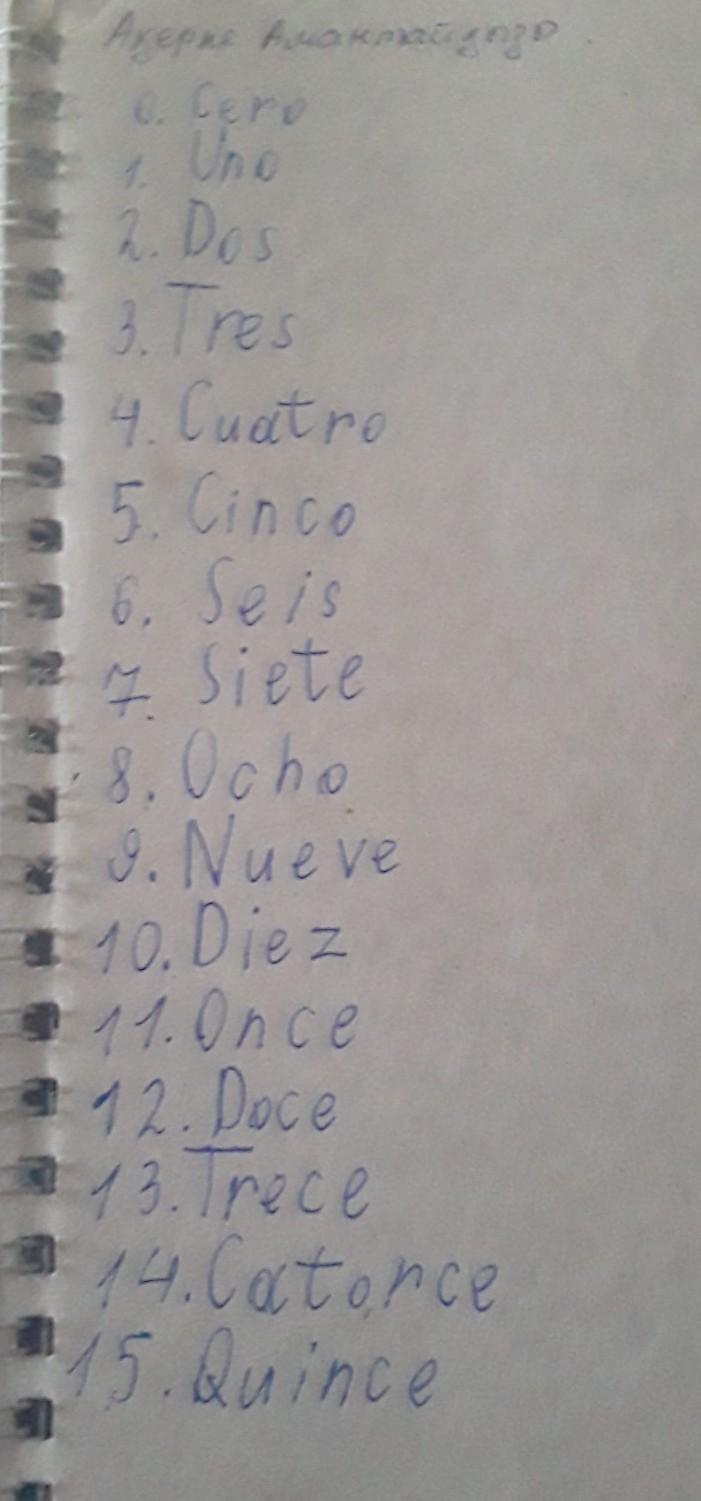 Акерке
0. Cero
1. Uno
2. Dos
3. Tres
4. Cuatro
5. Cinco
6. Seis
7. Siete
8. Ocho
9. Nueve
10. Diez
11. Once
12. Doce
13. Trece
14. Catorce
15. Quince